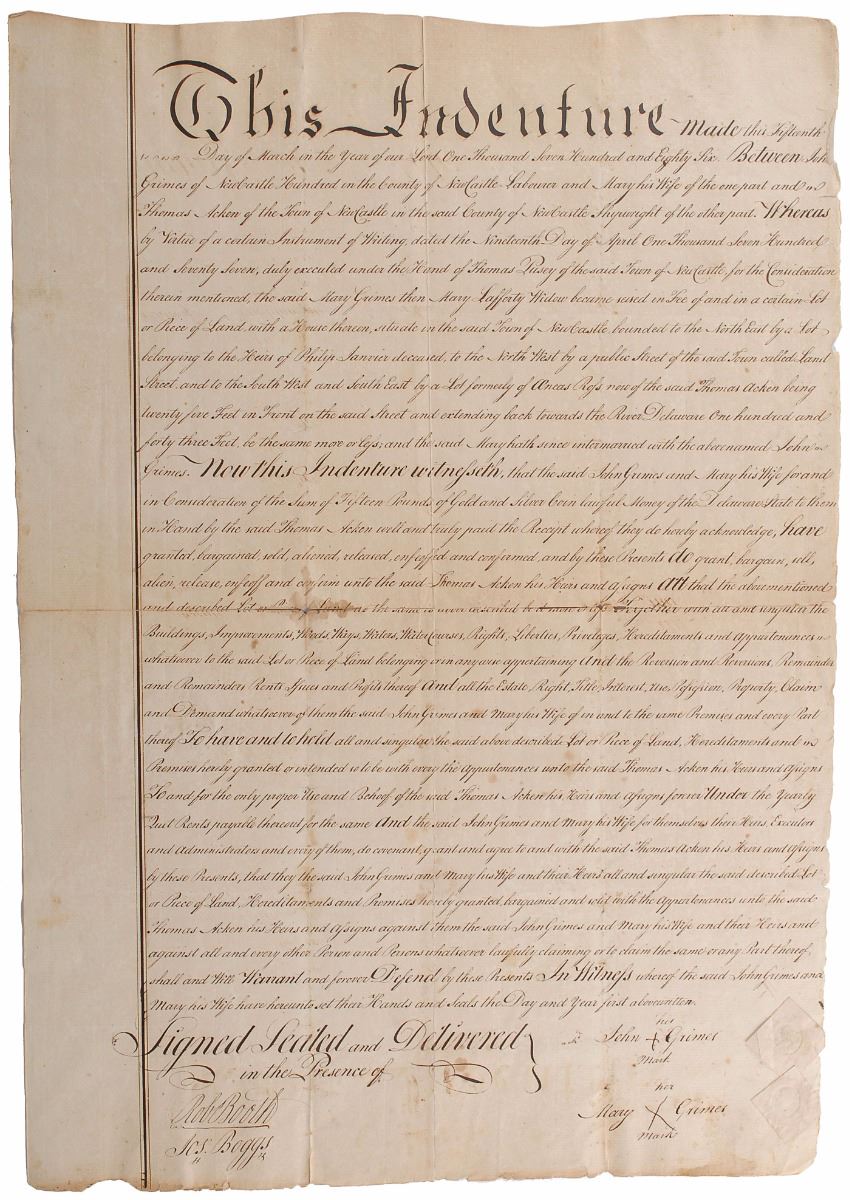 This Indenture Made this Fifteenth
Day of March in the Year of our Lord One Thousand Seven Hundred and Eighty Six. Between John
Grimes of NewCastle Hundred in the County of NewCastle Labourer and Mary his Wife of the one part and
Thomas Acken of the Town of NewCastle in the said County of NewCastle Shipwright of the other part. Whereas
by Virtue of a certain Instrument of Writing, dated the Nineteenth Day of April One Thousand Seven Hundred
and Seventy Seven, duly executed under the Hand of Thomas Pusey of the said Town of NewCastle, for the Consideration
therein mentioned, the said Mary Grimes then Mary Lafferty Widow became seised in Fee of and in a certain Lot
or Piece of Land with a House thereon, situate in the said Town of NewCastle, bounded to the North East by a Lot
belonging to the Heirs of Philip Janvier deceased, to the North West by a public Street of the said Town called Land
Street, and to the South West and South East by a Lot formerly of now of the said Thomas Acken being
twenty five Feet in Front on the said Street and extending back towards the River Delaware One hundred and
forty three Feet, be the same more or less; and the said Mary hath since intermarried with the abovenamed John
Grimes. Now this Indenture witnesseth, that the said John Grimes and Mary his Wife for and
in Consideration of the Sum of Fifteen Pounds of Gold and Silver Coin lawful Money of the Delaware State to them
in Hand by the said Thomas Acken well and truly paid the Receipt whereof they do hereby acknowledge, have
granted, bargained, sold, aliened, released, enfeoffed and confirmed, and by these Presents do grant, bargain, sell,
alien, release, enfeoff and confirm unto the said Thomas Acken his Heirs and assigns all that the abovementioned
and described Lot or Piece of Land as the same is above described be it more or less Together with all and singular the
Buildings, Improvements, Woods, Ways, Waters, Water Courses, Rights, Liberties, Privileges, Hereditaments and Appurtenances
whatsoever to the said Lot or Piece of Land belonging or in any wise appertaining And the Reversion and Reversions, Remainder
and Remainders Rents Issues and Profits thereof And all the Estate, Right, Title, Interest, Use, Possession, Property, Claim
and Demand whatsoever of them the said John Grimes and Mary his Wife of in and to the same Premises and every Part
thereof To have and to hold all and singular the said above described Lot or Piece of Land, Hereditaments and
Premises hereby granted or intended so to be with every the Appurtenances unto the said Thomas Acken his Heirs and Assigns
To and for the only proper Use and Behoof of the said Thomas Acken his Heirs and Assigns forever Under the Yearly
Quit Rents payable thereout for the same And the said John Grimes and Mary his Wife for themselves their Heirs, Executors
and Administrators and every of them, do covenant, grant and agree to and with the said Thomas Acken his Heirs and Assigns
by these Presents, that they the said John Grimes and Mary his Wife and their Heirs all and singular the said described Lot
or Piece of Land, Hereditaments and Premises hereby granted, bargained and sold with the Appurtenances unto the said
Thomas Acken his Heirs and Assigns against them the said John Grimes and Mary his Wife and their Heirs and
against all and every other Person and Persons whatsoever lawfully claiming or to claim the same or any Part thereof,
shall and Will Warrant and forever Defend by these Presents In Witness whereof the said John Grimes and
Mary his Wife have hereunto set their Hands and Seals the Day and Year first abovewritten.
Signed Sealed and Delivered
in the Presence of
his
John X Grimes
Mark
her
Mary X Grimes
mark
Rob. Booth
Jos. Boggs